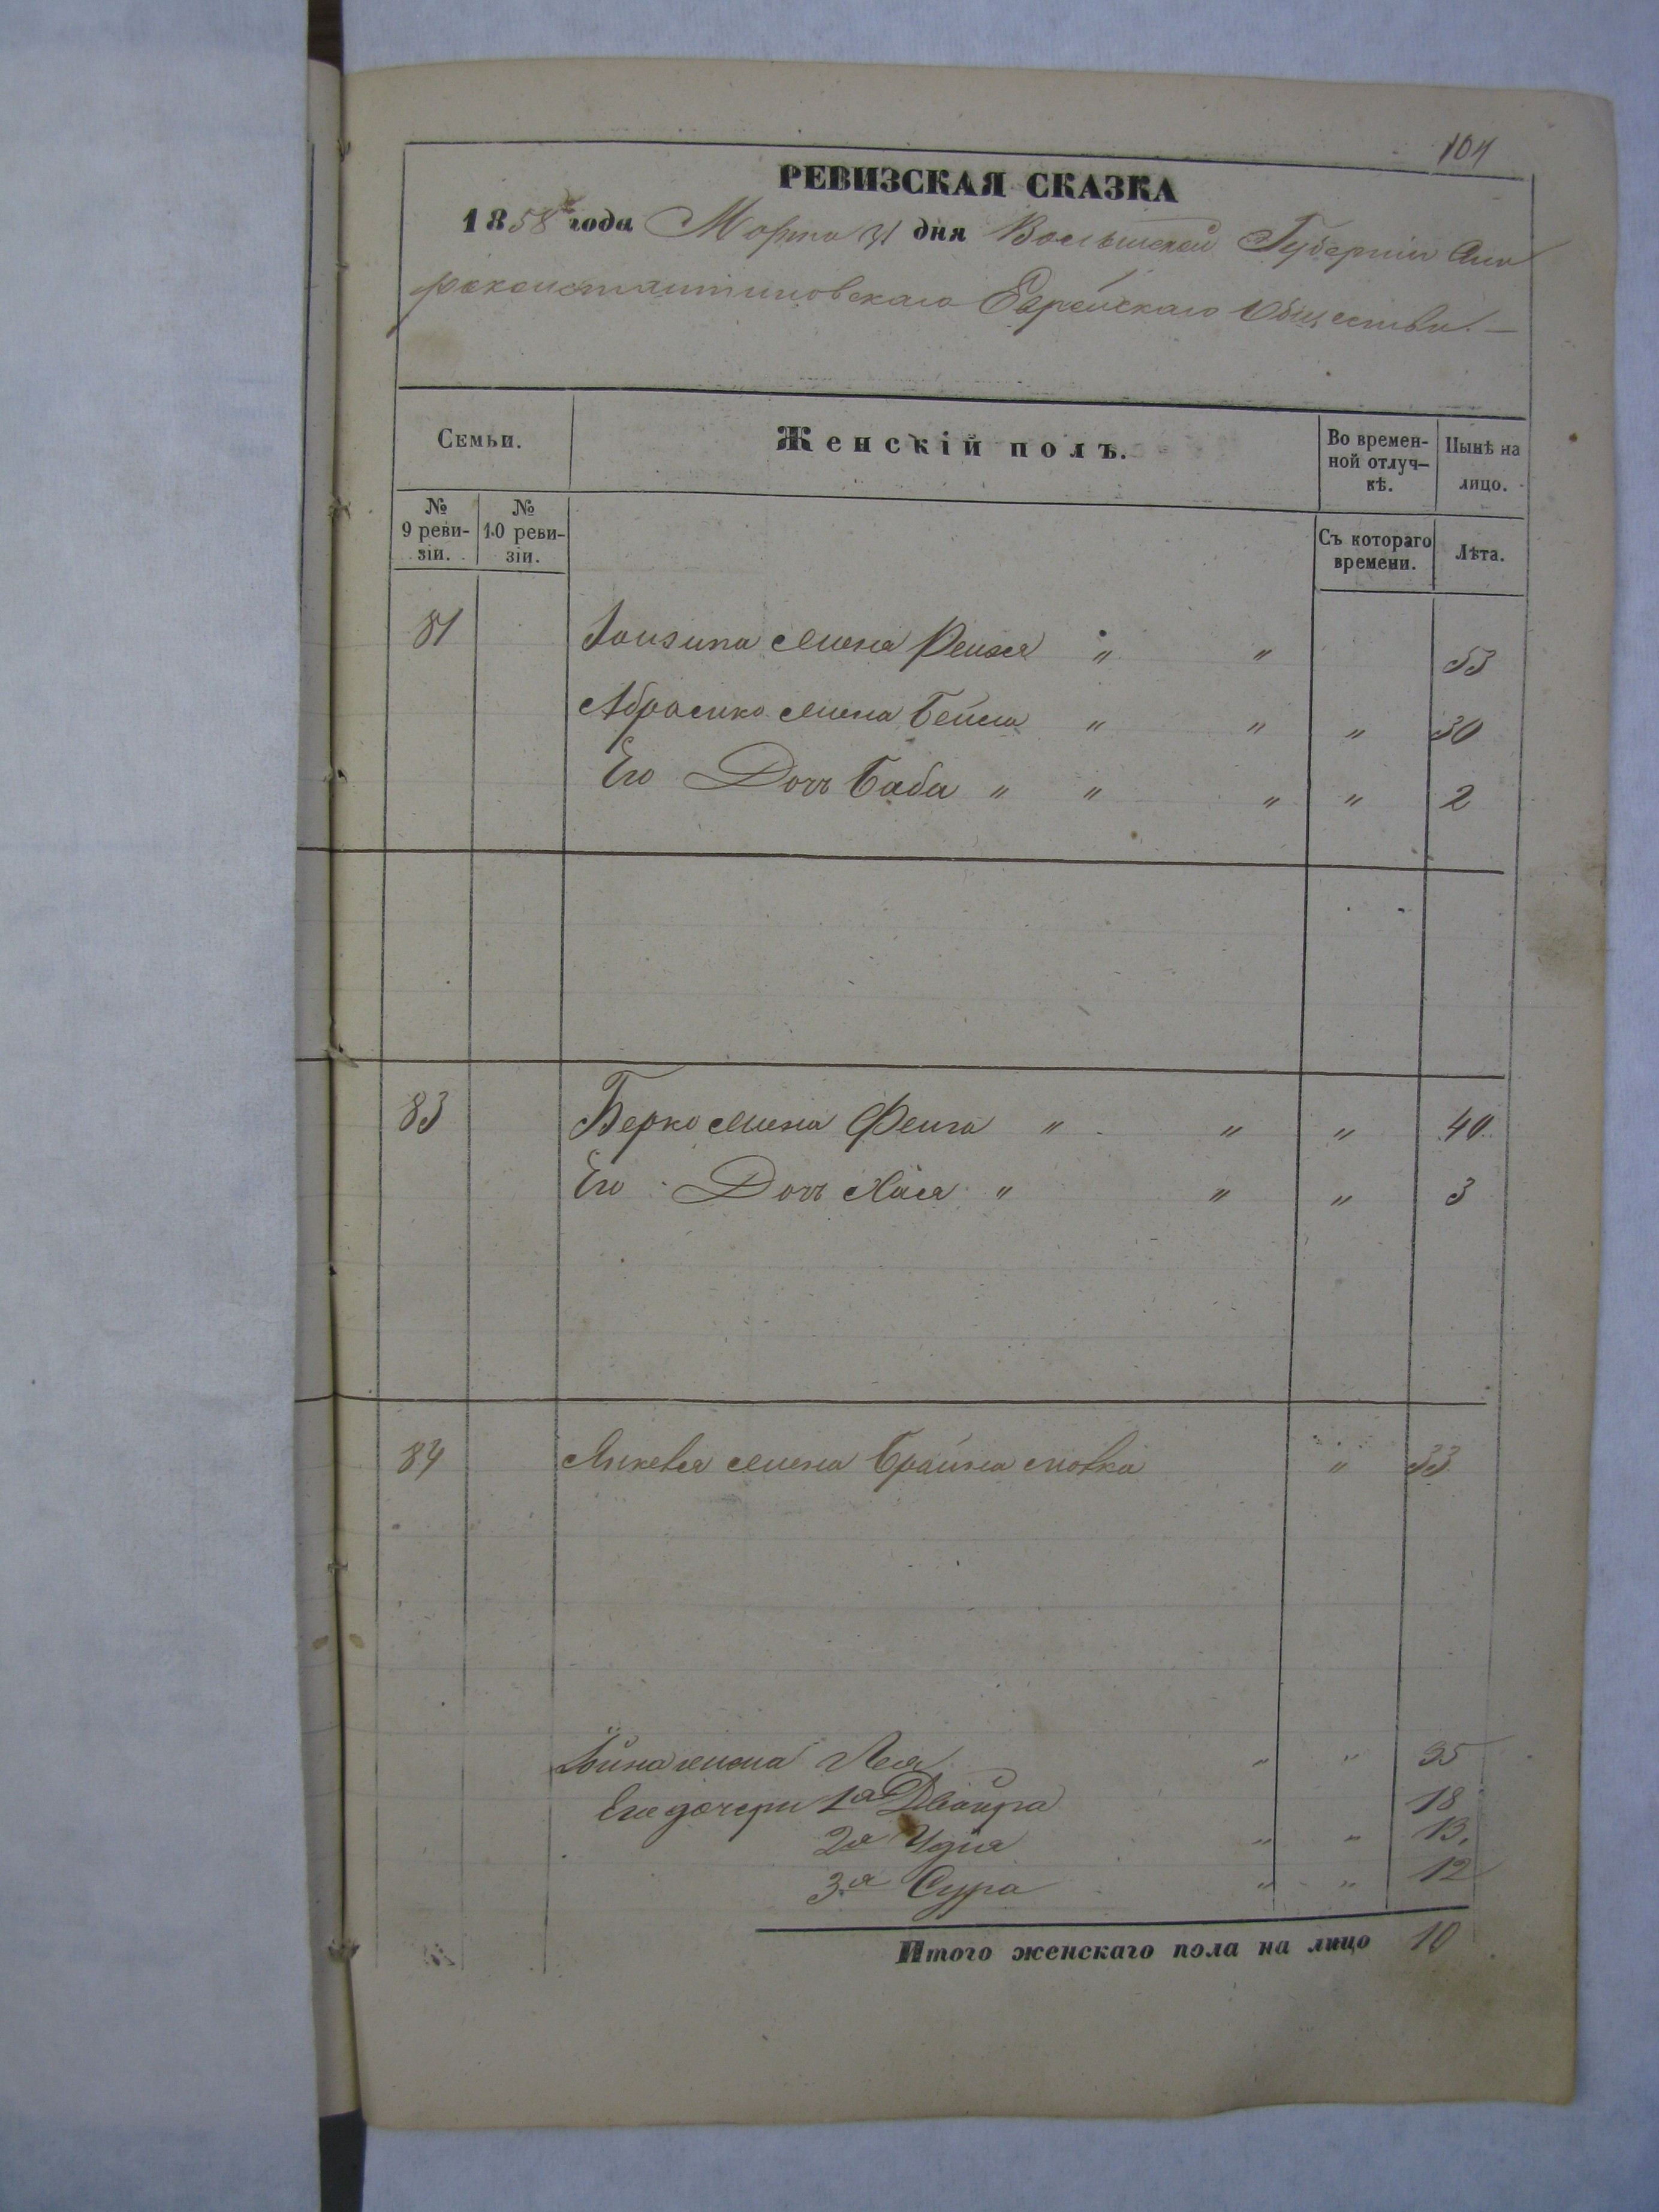 104
РЕВИЗСКАЯ СКАЗКА
1858 года Марта 31 дня Волынской Губерніи Ста
роконстантиновскаго Еврейскаго Общества. —
Семьи.
Женскій полъ.
Во времен-
ной отлуч-
кѣ.
Нынѣ на
лицо.
№
9 реви-
зіи.
№
10 реви-
зіи.
Съ котораго
времени.
Лѣта.
81 жена Рейзя " " 53
Абрамка жена Бейла " " " 30
Его Дочь Баба " " " " 2
83 Берко жена Фейга " " " 40
Его Дочь Хася " " " 3
84 Янкеля жена Брайна " 33
жена Лея " " 35
Его дочери 1я Двойра 18
2я Удля " " 13.
3я Сура " " 12
Итого женскаго пола на лицо 10